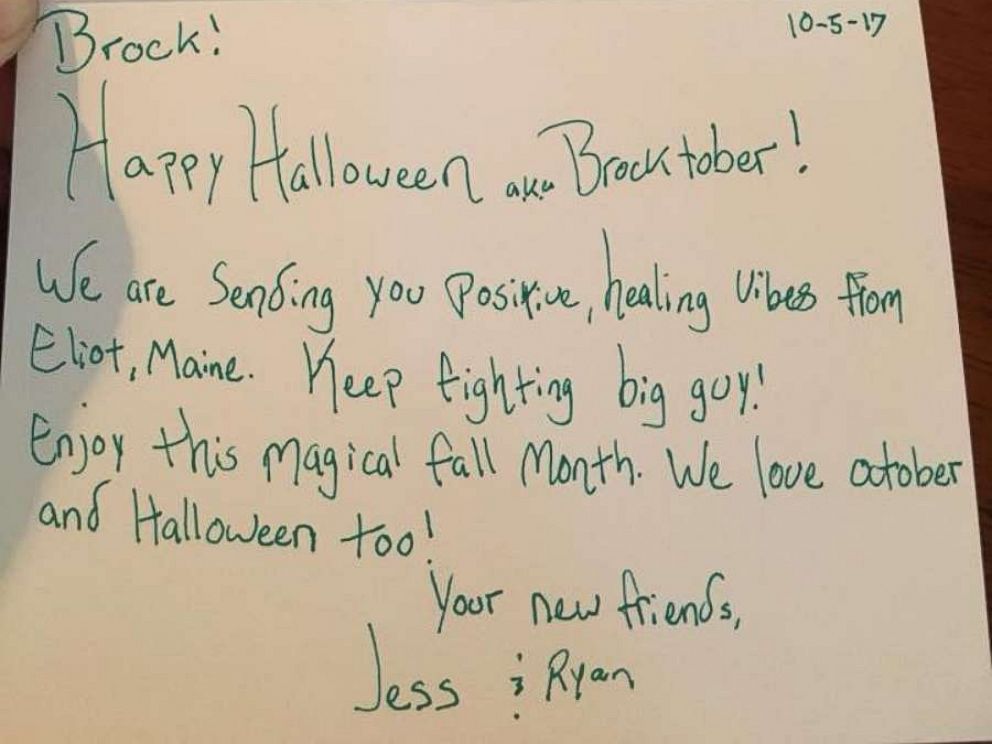 Brock! 10-5-17
Happy Halloween aka Brocktober!
We are Sending you Positive, healing vibes from
Eliot, Maine. Keep fighting big guy!
Enjoy this magical fall Month. We love october
and Halloween too!
Your new friends,
Jess & Ryan